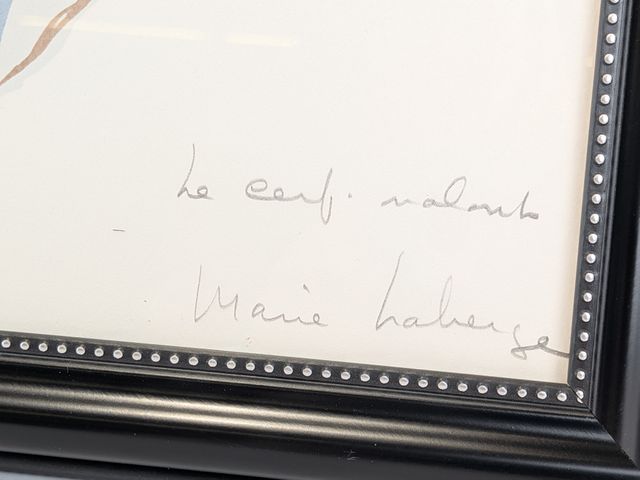 Le cerf. volant
Marie Laberge